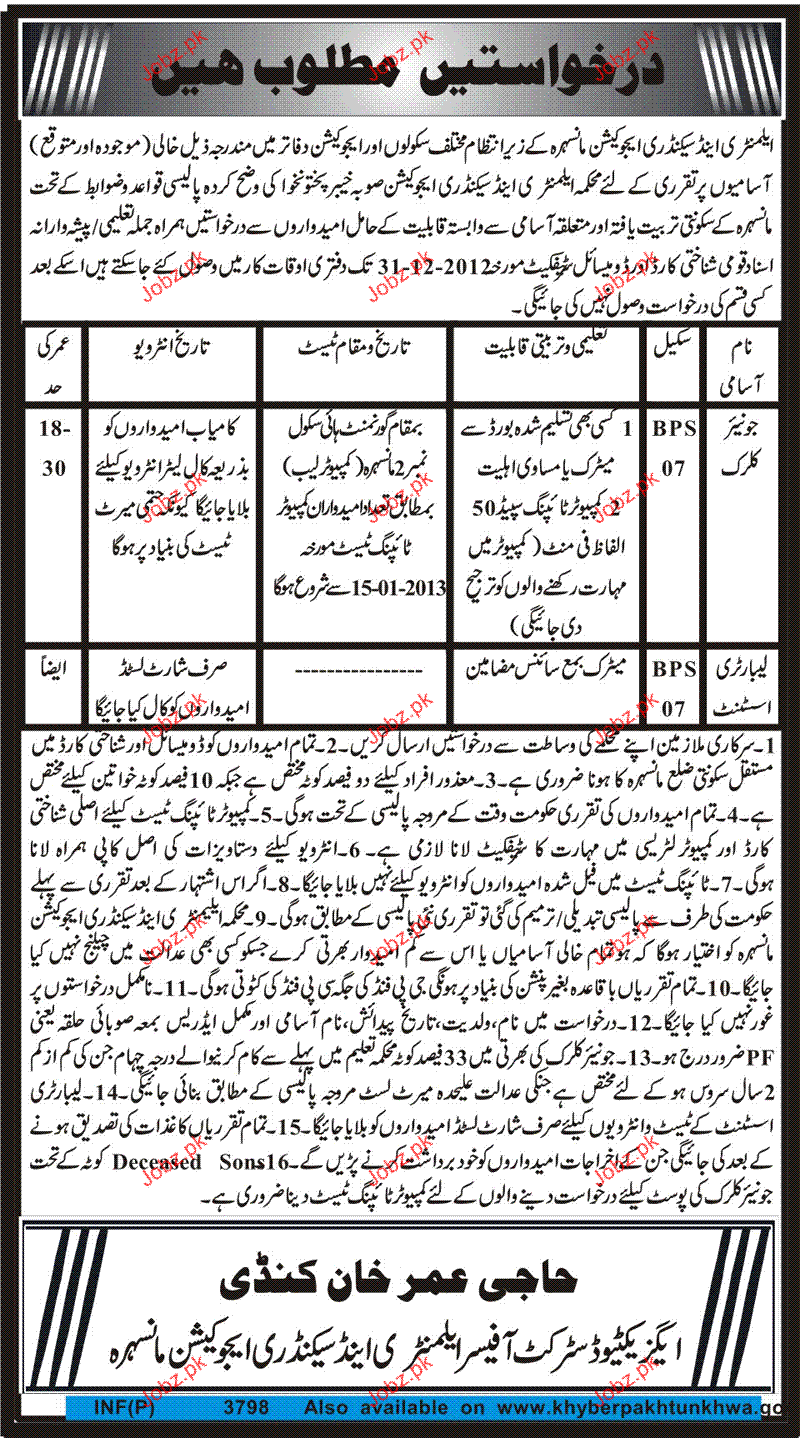 درخواستیں مطلوب ہیں
ایلمنٹری اینڈ سیکنڈری ایجوکیشن مانسہرہ کے زیر انتظام مختلف سکولوں اور ایجوکیشن دفاتر میں مندرجہ ذیل خالی (موجودہ اور متوقع)
آسامیوں پر تقرری کے لئے محکمہ ایلمنٹری اینڈ سیکنڈری ایجوکیشن صوبہ خیبر پختونخوا کی وضع کردہ پالیسی قواعد و ضوابط کے تحت
مانسہرہ کے سکونتی تربیت یافتہ اور متعلقہ آسامی سے وابستہ قابلیت کے حامل امیدواروں سے درخواستیں ہمراہ جملہ تعلیمی/پیشہ وارانہ
اسناد قومی شناختی کارڈ اور ڈومیسائل سرٹیفکیٹ مورخہ 31-12-2012 تک دفتری اوقات کار میں وصول کئے جاسکتے ہیں اسکے بعد
کسی قسم کی درخواست وصول نہیں کی جائیگی۔
نام آسامی
سکیل
تعلیمی و تربیتی قابلیت
تاریخ و مقام ٹیسٹ
تاریخ انٹرویو
عمر کی حد
جونیئر کلرک
BPS 07
1 کسی بھی تسلیم شدہ بورڈ سے
میٹرک یا مساوی اہلیت
2 کمپیوٹر ٹائپنگ سپیڈ 50
الفاظ فی منٹ (کمپیوٹر میں
مہارت رکھنے والوں کو ترجیح
دی جائیگی)
بمقام گورنمنٹ ہائی سکول
نمبر 2 مانسہرہ (کمپیوٹر لیب)
بمطابق تعداد امیدواران کمپیوٹر
ٹائپنگ ٹیسٹ مورخہ
15-01-2013 سے شروع ہوگا
کامیاب امیدواروں کو
بذریعہ کال لیٹر انٹرویو کیلئے
بلایا جائیگا کیونکہ حتمی میرٹ
ٹیسٹ کی بنیاد پر ہوگا
18-
30
لیبارٹری اسسٹنٹ
BPS 07
میٹرک بمع سائنس مضامین
---------------
صرف شارٹ لسٹڈ
امیدواروں کو کال کیا جائیگا
ایضاً
1۔ سرکاری ملازمین اپنے محکمے کی وساطت سے درخواستیں ارسال کریں۔ 2۔ تمام امیدواروں کو ڈومیسائل اور شناختی کارڈ میں
مستقل سکونتی ضلع مانسہرہ کا ہونا ضروری ہے۔ 3۔ معذور افراد کیلئے دو فیصد کوٹہ مختص ہے جبکہ 10 فیصد کوٹہ خواتین کیلئے مختص
ہے۔ 4۔ تمام امیدواروں کی تقرری حکومت وقت کے مروجہ پالیسی کے تحت ہوگی۔ 5۔ کمپیوٹر ٹائپنگ ٹیسٹ کیلئے اصلی شناختی
کارڈ اور کمپیوٹر لٹریسی میں مہارت کا سرٹیفکیٹ لانا لازمی ہے۔ 6۔ انٹرویو کیلئے دستاویزات کی اصل کاپی ہمراہ لانا
ہوگی۔ 7۔ ٹائپنگ ٹیسٹ میں فیل شدہ امیدواروں کو انٹرویو کیلئے نہیں بلایا جائیگا۔ 8۔ اگر اس اشتہار کے بعد تقرری سے پہلے
حکومت کی طرف سے پالیسی تبدیل/ترمیم کی گئی تو تقرری نئی پالیسی کے مطابق ہوگی۔ 9۔ محکمہ ایلیمنٹری اینڈ سیکنڈری ایجوکیشن
مانسہرہ کو اختیار ہوگا کہ ہو تمام خالی آسامیاں یا اس سے کم امیدوار بھرتی کرے جسکو کسی بھی عدالت میں چیلنج نہیں کیا
جائیگا۔ 10۔ تمام تقرریاں باقاعدہ بغیر پنشن کی بنیاد پر ہونگی جی پی فنڈ کی جگہ سی پی فنڈ کی کٹوتی ہوگی۔ 11۔ نامکمل درخواستوں پر
غور نہیں کیا جائیگا۔ 12۔ درخواست میں نام، ولدیت، تاریخ پیدائش، نام آسامی اور مکمل ایڈریس بمعہ صوبائی حلقہ یعنی
PF ضرور درج ہو۔ 13۔ جونیئر کلرک کی بھرتی میں 33 فیصد کوٹہ محکمہ تعلیم میں پہلے سے کام کرنیوالے درجہ چہام جن کی کم از کم
2 سال سروس ہو کے لئے مختص ہے جنکی عدالت علیحدہ میرٹ لسٹ مروجہ پالیسی کے مطابق بنائی جائیگی۔ 14۔ لیبارٹری
اسسٹنٹ کے ٹیسٹ و انٹرویوں کیلئے صرف شارٹ لسٹڈ امیدواروں کو بلایا جائیگا۔ 15۔ تمام تقرریاں کاغذات کی تصدیق ہونے
کے بعد کی جائیگی جن کے اخراجات امیدواروں کو خود برداشت کرنے پڑیں گے۔ 16 Deceased Sons کوٹہ کے تحت
جونیئر کلرک کی پوسٹ کیلئے درخواست دینے والوں کے لئے کمپیوٹر ٹائپنگ ٹیسٹ دینا ضروری ہے۔
حاجی عمر خان کنڈی
ایگزیکٹیو ڈسٹرکٹ آفیسر ایلمنٹری اینڈ سیکنڈری ایجوکیشن مانسہرہ
INF(P) 3798 Also available on www.khyberpakhtunkhwa.go